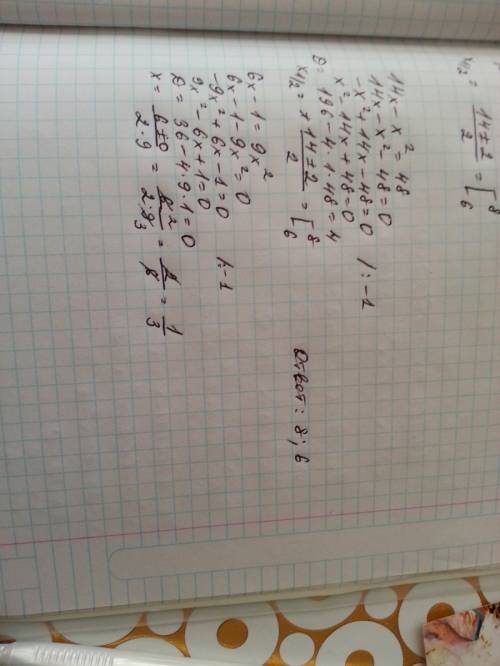 x₁/₂ = (14±2)/2 = [8 6
14x - x² = 48
14x - x² - 48 = 0
-x² + 14x - 48 = 0 |: -1
x² - 14x + 48 = 0
D = 196 - 4·1·48 = 4
x₁/₂ = + (14±2)/2 = [8 6
Ответ: 8; 6
6x - 1 = 9x²
6x - 1 - 9x² = 0
-9x² + 6x - 1 = 0 |: -1
9x² - 6x + 1 = 0
D = 36 - 4·9·1 = 0
x = (6±0)/(2·9) = 6 2/(2·9 3) = 2/6 = 1/3